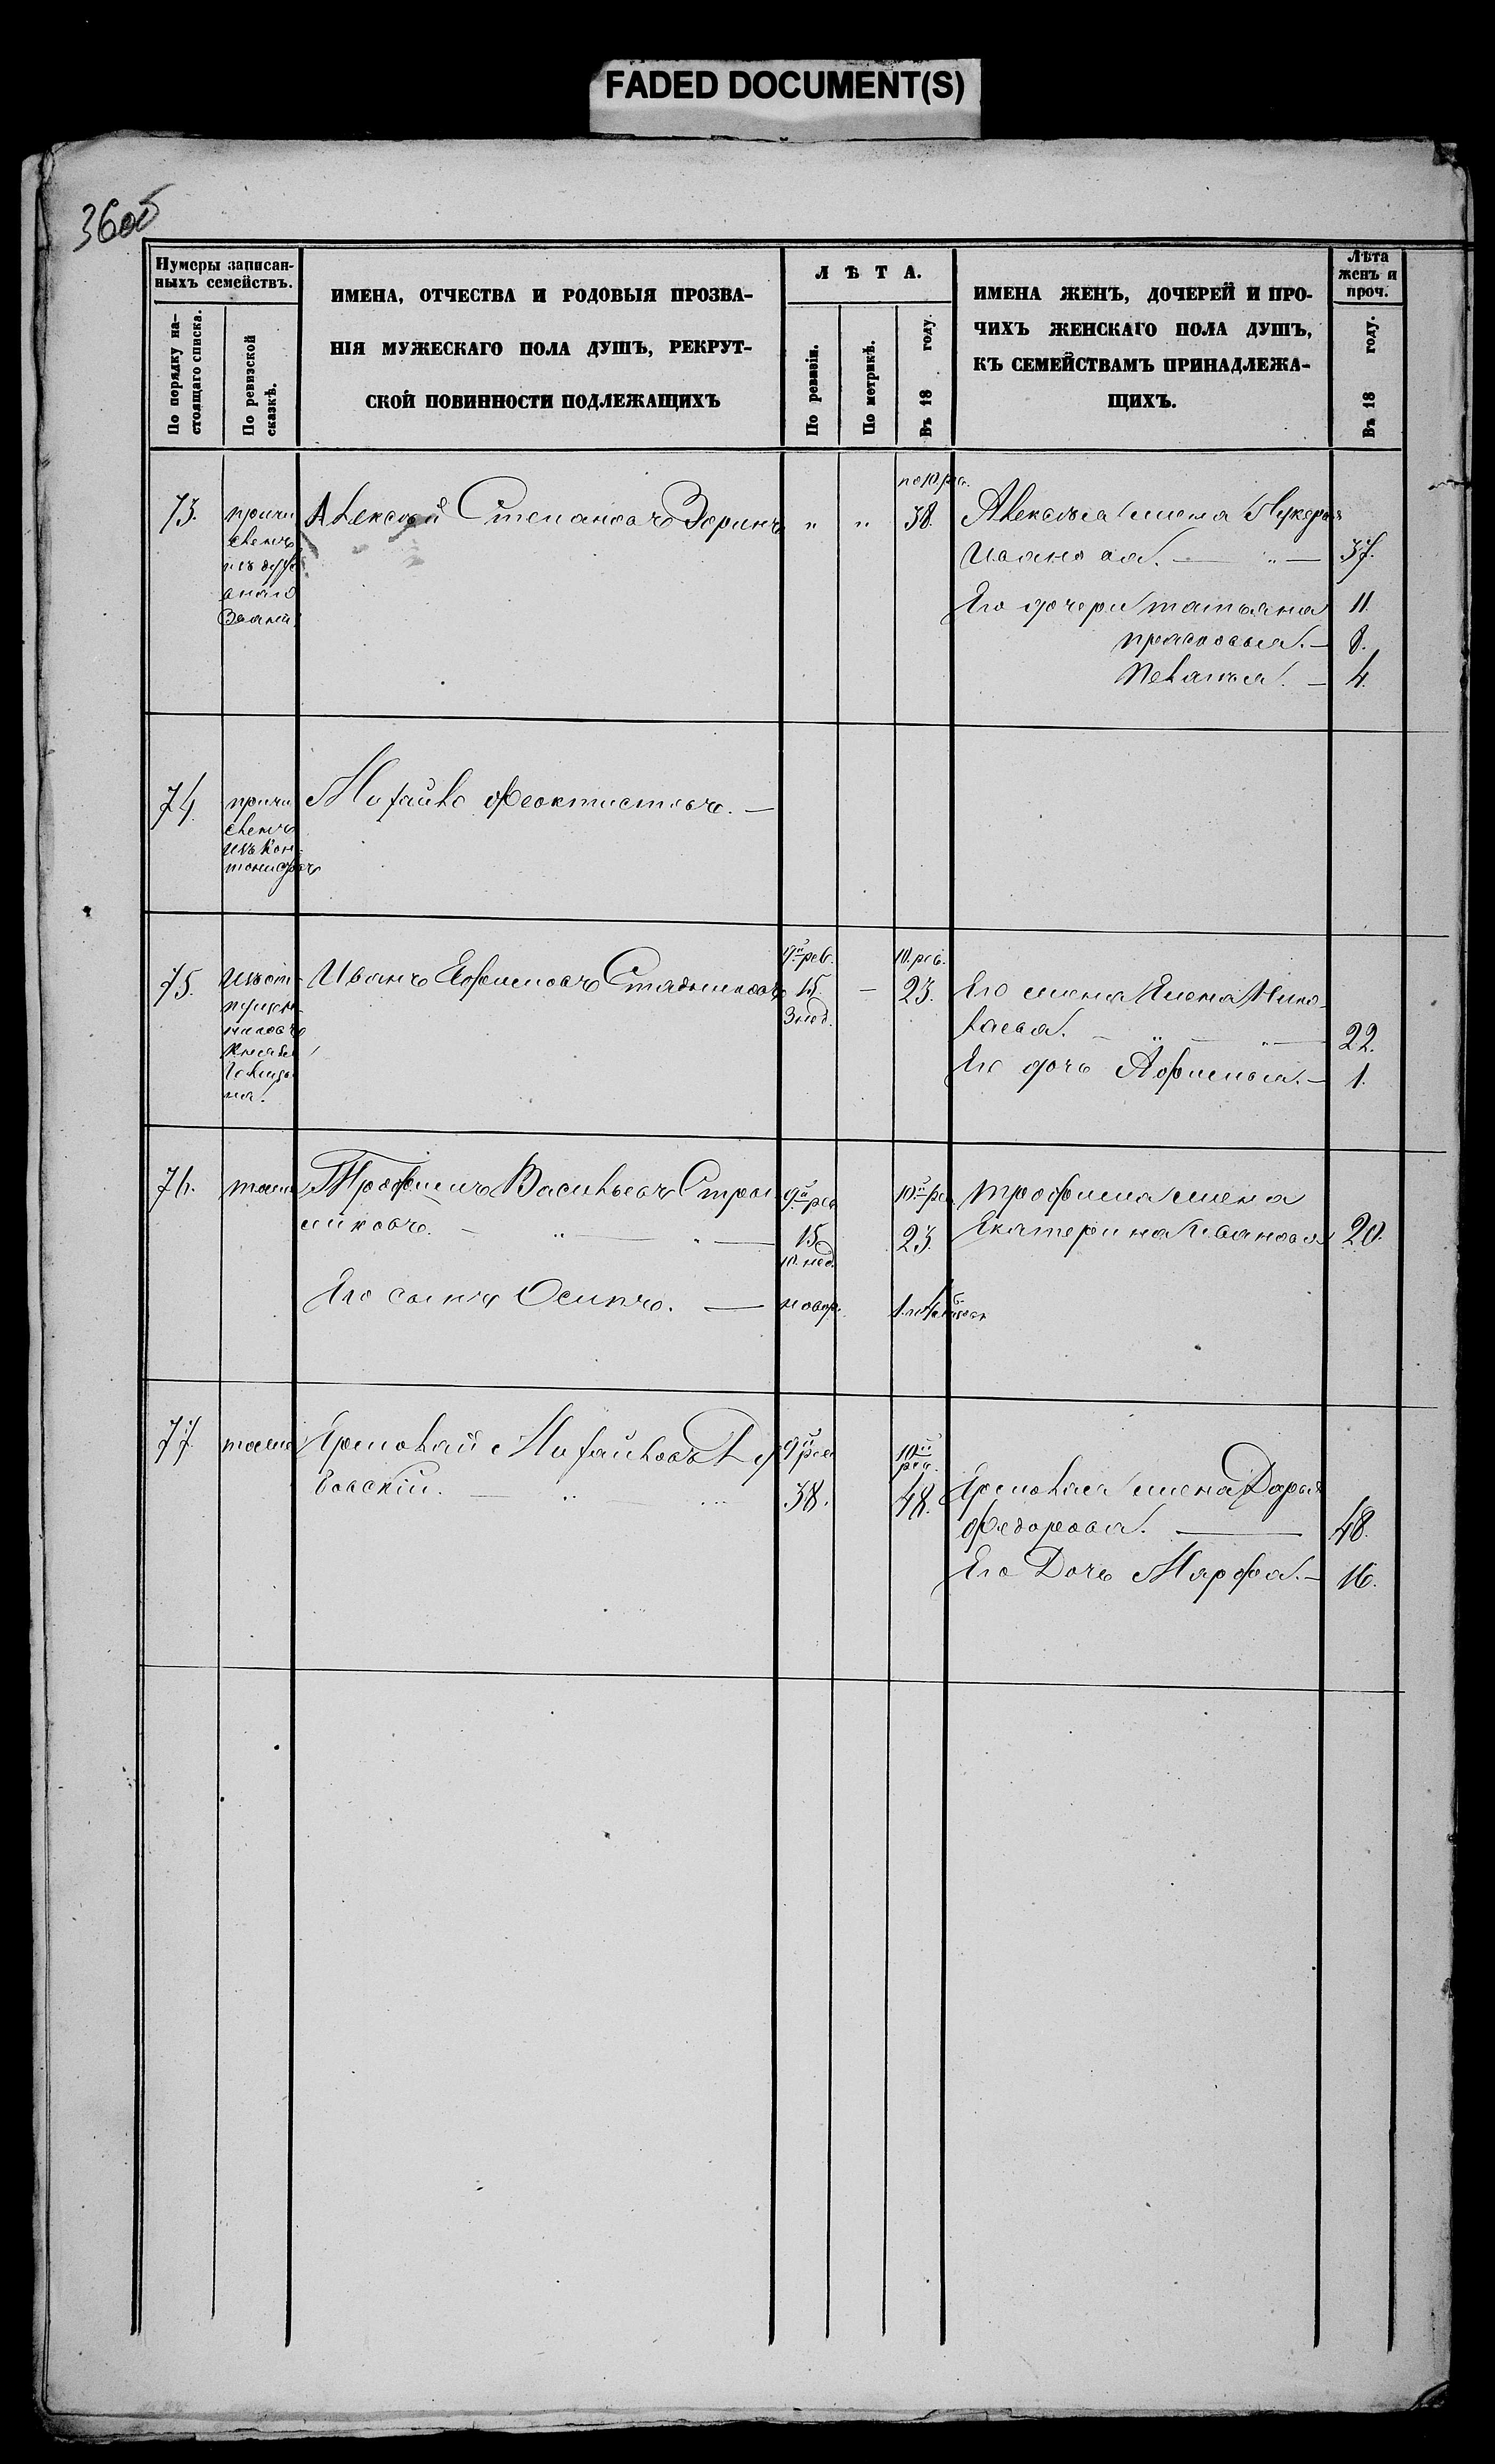 FADED DOCUMENT(S)
36об
Нумеры записан-
ныхъ семействъ.
По порядку на-
стоящаго списка.
По ревизской
сказкѣ.
ИМЕНА, ОТЧЕСТВА И РОДОВЫЯ ПРОЗВА-
НІЯ МУЖЕСКАГО ПОЛА ДУШЪ, РЕКРУТ-
СКОЙ ПОВИННОСТИ ПОДЛЕЖАЩИХЪ
Л Ѣ Т А.
По ревизіи.
По метрикѣ.
Въ 18 году.
ИМЕНА ЖЕНЪ, ДОЧЕРЕЙ И ПРО-
ЧИХЪ ЖЕНСКАГО ПОЛА ДУШЪ,
КЪ СЕМЕЙСТВАМЪ ПРИНАДЛЕЖА-
ЩИХЪ.
Лѣта
женъ и
проч.
Въ 18 году.
73.
причи
сленъ
изъ
Званія
Алексѣй Степановъ Зоринъ
" "
по 10 рев.
38.
Алексѣя жена Лукерья
Иванова. — " — 37.
Его дочери татьяна 11.
прасковья. — 8.
Пелагея. — 4.
74.
причи
сленъ
изъ Кан
тонистовъ
Михайло Феоктистовъ. —
75.
Изъ от
пущен
никовъ
Князя
Голицы
на.
Иванъ Ефимовъ Стадниковъ
9й рев.
15.
3 нед.
—
10. рев.
23.
Его жена Елена Нико-
лаева. — " — " — 22.
Его дочь Афимья. — 1.
76.
тоже
Трофимъ Васильевъ Стра
шковъ. — " — " —
9й рев
15
10. нед.
10й рев.
23.
трофима жена
Екатерина Иванова 20.
Его сынъ Осипъ. — новор.
77.
тоже
Ермолай Михайловъ
бовскій. — " "
9й рев
38.
10й
рев.
48.
Ермолая жена Дарья
Федорова. — 48.
Его Дочь Марфа. — 16.